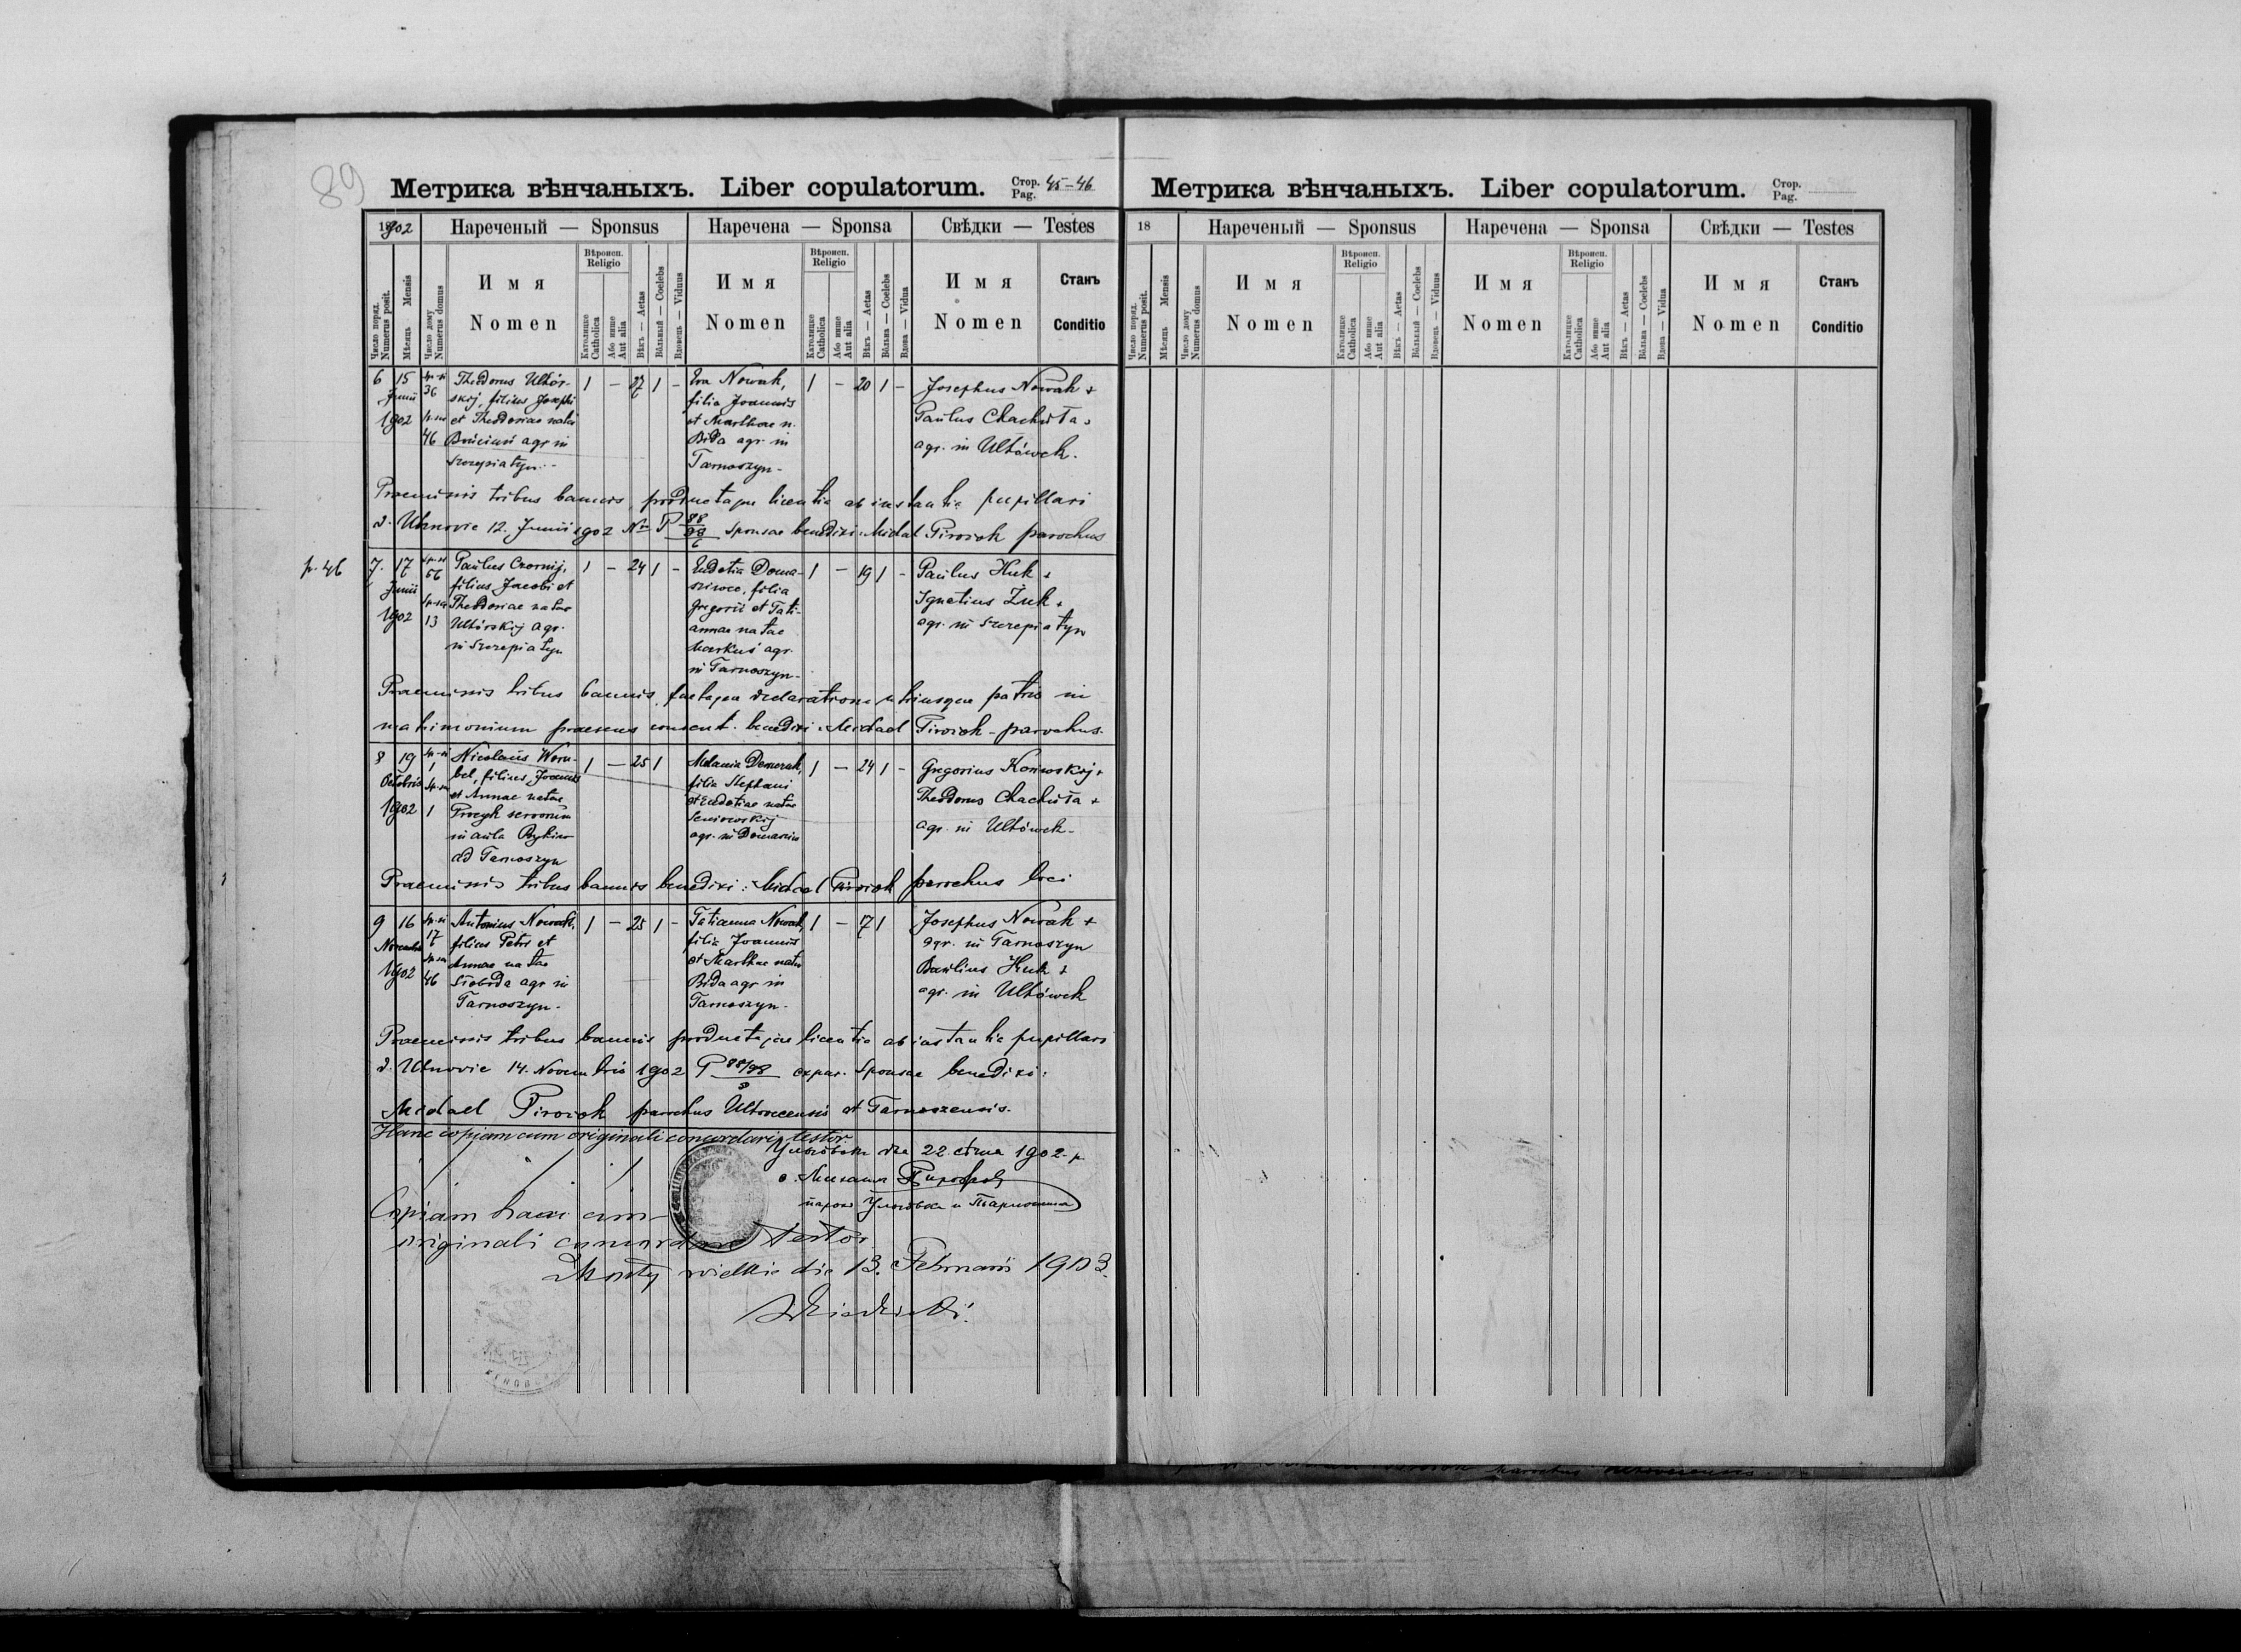 89
Метрика вѣнчаныхъ. Liber copulatorum. Стор. Pag. 45-46
1902 Нареченый — Sponsus Наречена — Sponsa Свѣдки — Testes
Число поряд. Numerus posit. Мѣсяць Mensis Число дому Numerus domus Имя Nomen Вѣроисп. Religio Католицке Catholica Або инше Aut alia Вѣкъ — Aetas Вôльный — Coelebs Вдовець — Viduus Имя Nomen Вѣроисп. Religio Католицке Catholica Або инше Aut alia Вѣкъ — Aetas Вôльна — Coelebs Вдова — Vidua Имя Nomen Станъ Conditio
6 15 Junii 1902
36
46
Theodorus Uhór-
skij, filius Josephi
et Theodoriae natae
agr. in
Szczepiatyn.
1 — 27 1 —
Eva Nowak,
filia Joannis
et Marthae n.
Bida agr. in
Tarnoszyn-
1 — 20 1 —
Josephus Nowak +
Paulus Chachuła +
agr. in Uhówek.
Praemissis tribus bannis, productaque licentia ab instantia pupillari
d. Uhnovie 12. Junii 1902 No P 88/98 6 sponsae benedixi: Michael Pirożok parochus
p. 46
7. 17 Junii 1902
56
13
Paulus Czornij,
filius Jacobi et
Theodoriae natae
Uhórskij agr.
in Szczepiatyn
1 — 24 1 —
Eudotia Doma-
filia
Gregorii et Tati-
annae natae
Markuś agr.
in Tarnoszyn-
1 — 19 1 —
Paulus Huk +
Ignatius Żuk +
agr. in Szczepiatyn
Praemissis tribus bannis, factaque declaratione utriusque patris in
matrimonium praesens consent. benedixi: Michael Pirożok - parochus.
8 19 Octobris 1902
1
1
Nicolaus Woro-
bel, filius Joannis
et Annae natae
Procyk servorum
in aula
ad Tarnoszyn
1 — 25 1
Melania Demczuk,
filia Stephani
et Eudotiae natae
agr. in
1 — 24 1 —
Gregorius +
Theodorus Chachuła +
agr. in Uhówek-
Praemissis tribus bannis benedixi: Michael Pirożok parochus loci
9 16 Novembris 1902
17
46
Antonius Nowak,
filius Petri et
Annae natae
agr. in
Tarnoszyn-
1 — 25 1 —
Tatianna Nowak,
filia Joannis
et Marthae natae
Bida agr. in
Tarnoszyn-
1 — 17 1
Josephus Nowak +
agr. in Tarnoszyn
Basilius Huk +
agr. in Uhówek
Praemissis tribus bannis productaque licentia ab instantia pupillari
d. Uhnovie 14. Novembris 1902 P 88/98 8 sponsae benedixi:
Michael Pirożok parochus et Tarnoszensis.
Hanc copiam cum originali concordare testor.
дня 22. 1902 р.
о. Михаил Пирожок
парох и Тарношина
Copiam hanc cum
originali concordare testor
Mosty wielkie die 13. Februarii 1903.
Метрика вѣнчаныхъ. Liber copulatorum. Стор. Pag.
18 Нареченый — Sponsus Наречена — Sponsa Свѣдки — Testes
Число поряд. Numerus posit. Мѣсяць Mensis Число дому Numerus domus Имя Nomen Вѣроисп. Religio Католицке Catholica Або инше Aut alia Вѣкъ — Aetas Вôльный — Coelebs Вдовець — Viduus Имя Nomen Вѣроисп. Religio Католицке Catholica Або инше Aut alia Вѣкъ — Aetas Вôльна — Coelebs Вдова — Vidua Имя Nomen Станъ Conditio